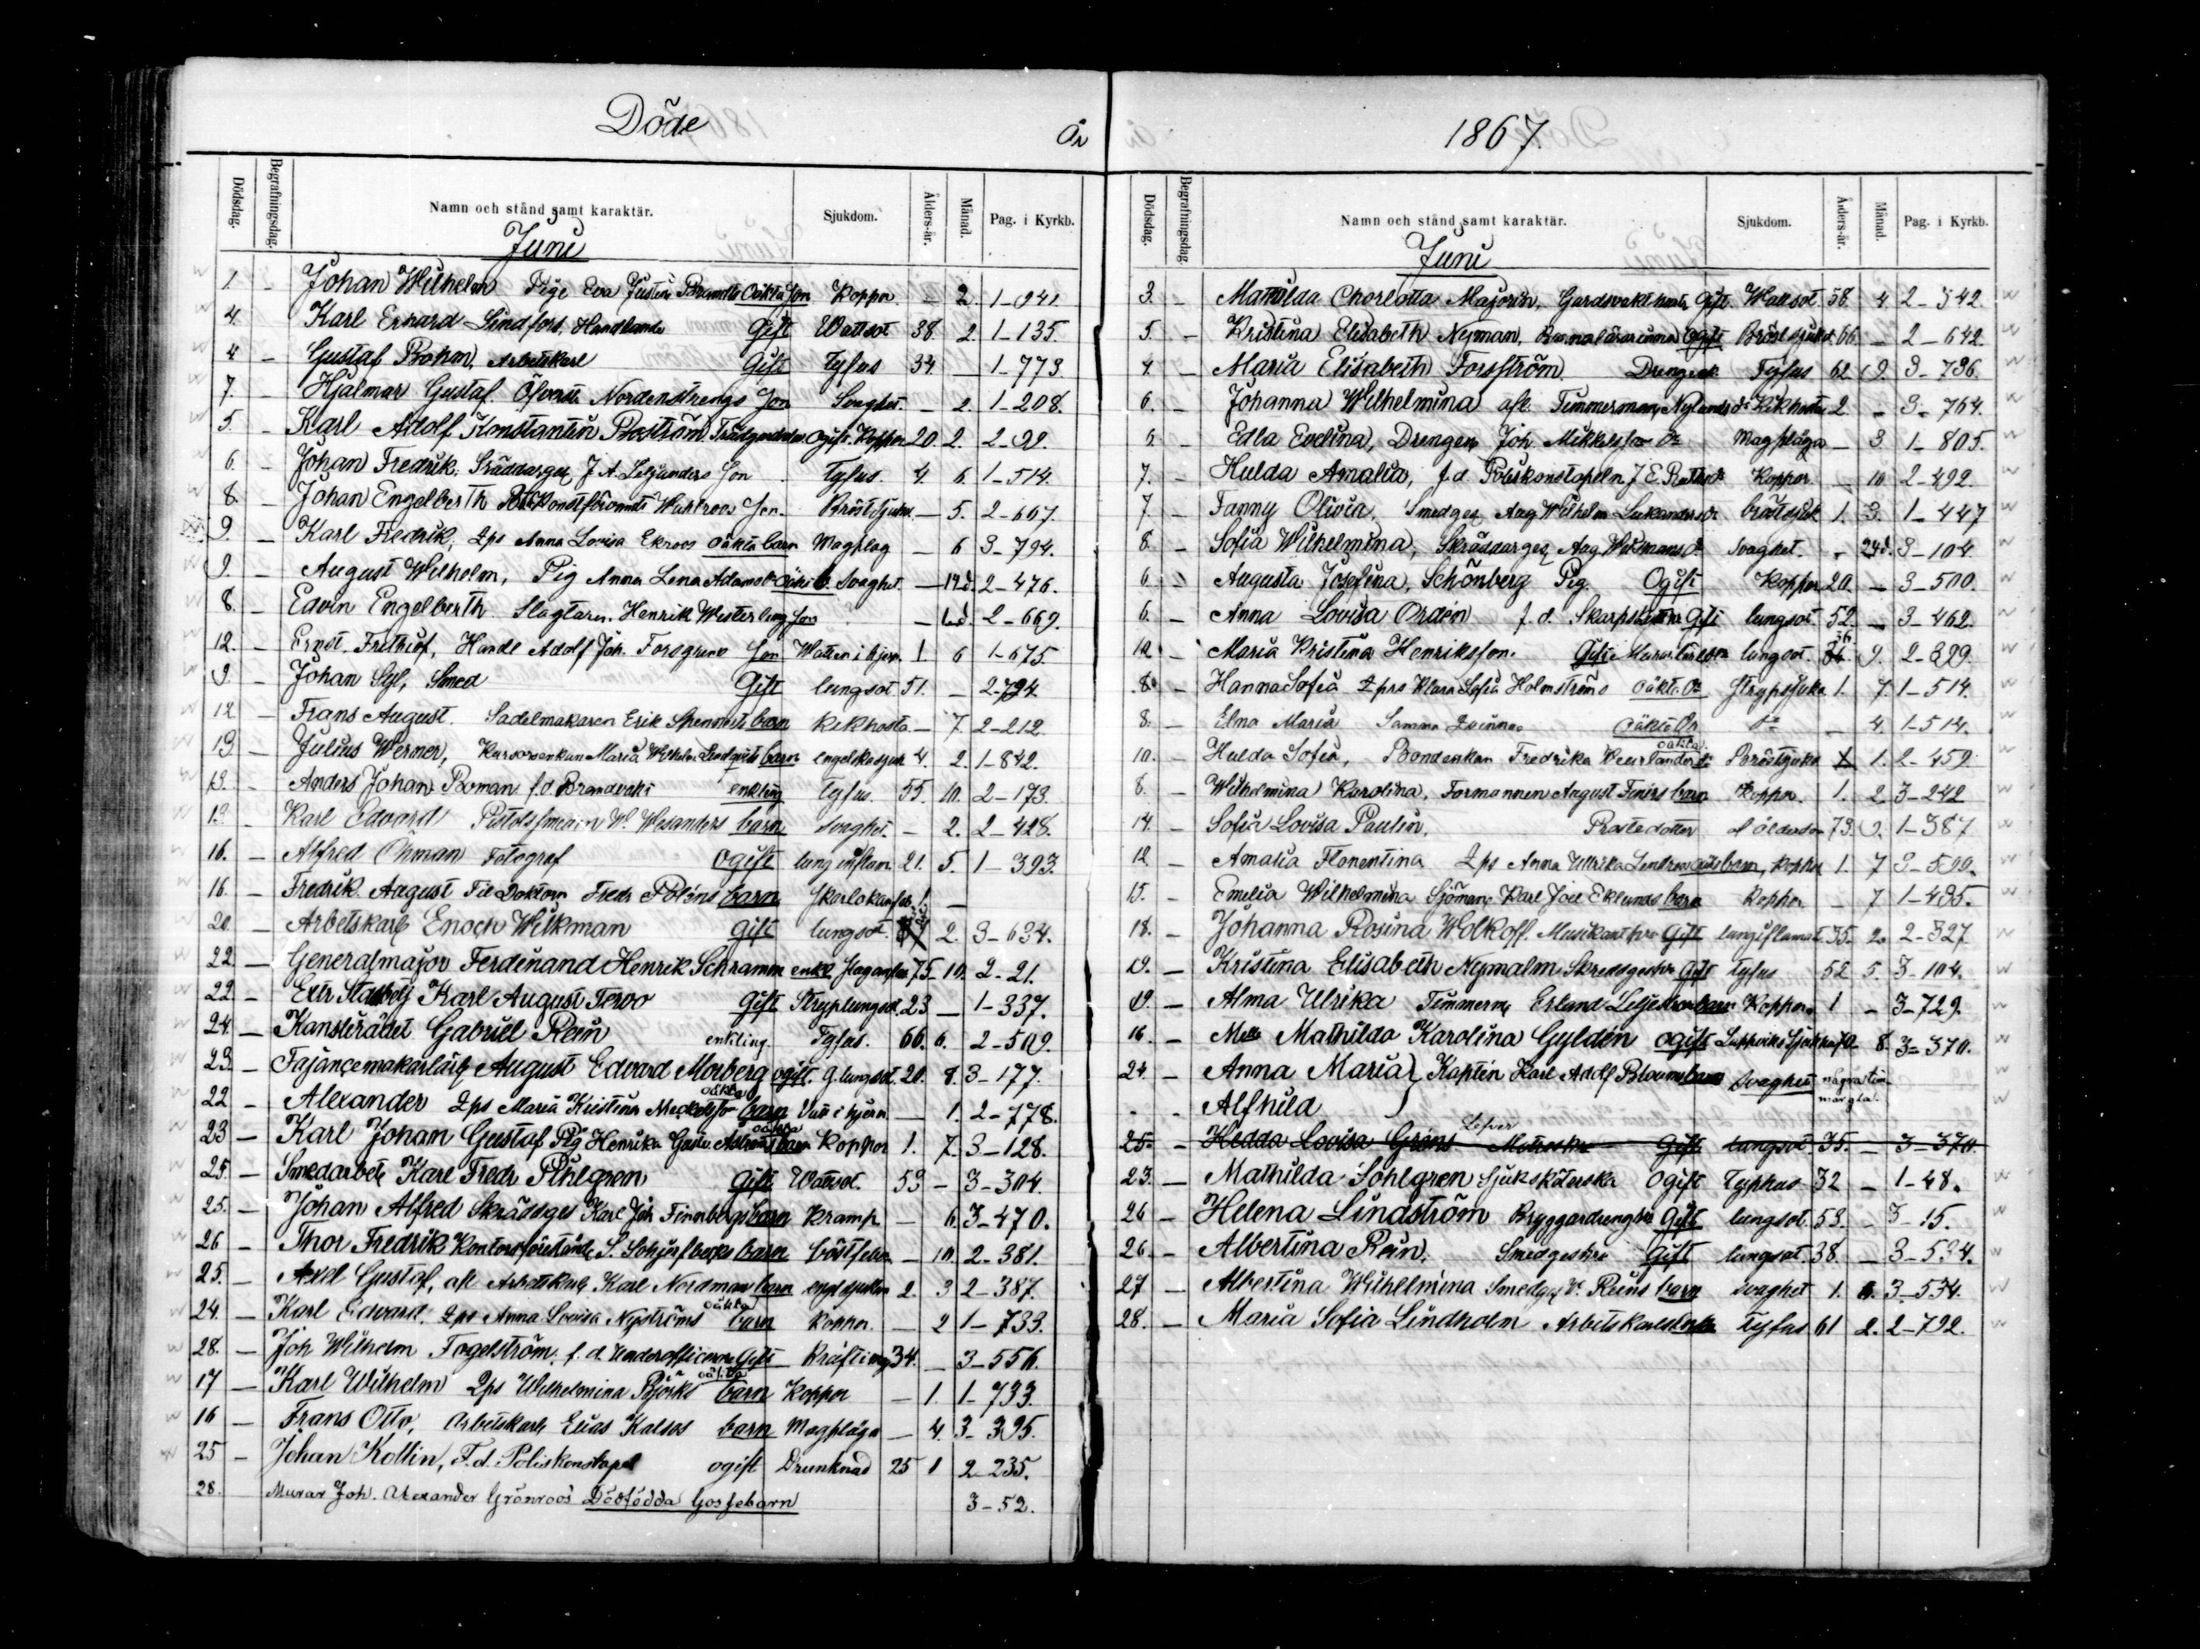 Döde
År
Dödsdag. Begrafningsdag. Namn och stånd samt karaktär. Sjukdom. Ålders-år. Månad. Pag. i Kyrkb.
Juni
1 - Johan Wilhelm Pige Eva Justin Brandts oäkta son Koppor. - 2. 1-941.
4. Karl Erhard Lindfors, Handlande Gift Wattsot 38. 2. 1-135.
4 - Gustaf Boman, Arbetskarl Gift Tyfus 34 - 1-773.
7. - Hjalmar Gustaf. Öfverste Nordenstrengs Son Svaghet. - 2. 1-208.
5. - Karl Adolf Konstantin Boström ogift. Koppor 20. 2. 2-99.
6. - Johan Fredrik. Skräddarges J. A. Liljanders Son Tyfus. 4. 6. 1-514.
8. - Johan Engelberth Wahlroos Son. Bröstsjukd. - 5. 2-667.
9. - Karl Fredrik, Qps Anna Lovisa Ekroos oäkta barn Magplag - 6 3-794.
9. - August Wilhelm, Pig Anna Lena Adamsd. oäkt b. Svaghet. - 12d. 2-476.
8. - Edvin Engelberth Slagtaren Henrik Westerling Son ? - 1.d. 2-669.
12. - Ernst Frithiof, Handl Adolf Joh. Forsgrens Son Watten i hjern. 1. 6 1-675.
9. - Johan Syl, Smed Gift lungsot 51. - 2-794.
12. - Frans August. Sadelmakaren Erik Spennerts barn Kikhosta - 7 2-212.
13. - Julius Werner, Maria Wilhelm. Lindqvists barn engelskasjuk 4. 2. 1-842.
13. - Anders Johan Boman f.d. Brandvakt enkling Tyfus. 55. 10. 2-173.
13. - Karl Edvard Pistolsmeden W. Wesanders barn svaghet. - 2. 2-428.
16. - Alfred Öhman Fotograf Ogift lunginflam. 21. 5. 1-393.
16. - Fredrik August Fil Doktorn Fredr Poléns barn Skarlakansfeb. 1. -
20. - Arbetskarlen Enoch Wilkman Gift lungsot. 2. 3-634.
22. - Generalmajor Ferdinand Henrik Schramm enkl. Slaganfall 75. 10. 2-21.
22. - Extr Stadsbetj Karl August Tervo Gift Struplungsot. 23 - 1-337.
24. - Kanslirådet Gabriel Rein enkling. Tyfus. 66. 6. 2-509.
23. - Fajançemakarlärl August Edvard Moberg ogift. G. lungsot. 20. 8. 3-177.
22 - Alexander Qps Maria Kristina Meckelsso oäkta barn Vatt i hjern - 1. 2-778.
23 - Karl Johan Gustaf Pig Henrika Gust. oäkta barn Koppor 1. 7. 3-128.
25. - Smedarbet Karl Fredr Pihlgren Gift Wattsot. 53 - 3-304.
25. - Johan Alfred Skrädsges Karl Joh Finnbergs barn Kramp - 6. 3-470.
26 - Thor Fredrik Kontorsföreståndr S. Sohjelbergs barn böstfeber - 10. 2-381.
25. - Axel Gustaf, afl. Arbetskarl Karl Nordman barn engl sjukan 2. 3 2-387.
24. - Karl Edvard. Qps Anna Lovisa Nyströms oäkta barn Koppor. - 2 1-733.
28. - Joh Wilhelm Fagelström f.d. Underofficerare Gift Kräfting 34. - 3-556.
17 - Karl Wilhelm Qps Wilhelmina Björks oäkta barn Koppor - 1. 1-733.
16 - Frans Otto, Arbetskarl Elias Kalsos barn Magplåga - 4. 3-395.
25 - Johan Kollin, F.d. Poliskonstapel ogift Drunknad 25 1 2-235.
28. Murar Joh. Alexander Grönroos Dödfödda Gossebarn 3-52.
1867.
Dödsdag. Begrafningsdag. Namn och stånd samt karaktär. Sjukdom. Ålders-år. Månad. Pag. i Kyrkb.
Juni
3. - Mathilda Charlotta Majorin, Gardsvakt Gift Wattsot 58. 4 2-342.
5. - Kristina Elisabeth Nyman, Barnalärarinna Ogift Bröstsjukd. 66. - 2-642.
4. - Maria Elisabeth Forsström. Drengenk. Tyfus 62 9. 3-736.
6. - Johanna Wilhelmina afl. Timmerman Nylunds dr Kikhosta 2. - 3-764.
5. - Edla Evelina, Drengen Joh. Mikkelsson dr Magplåga - 3. 1-805.
7. - Hulda Amalia, f.d. Poliskonstapeln J E Koppor. - 10 2-492.
7. - Fanny Olivia, Smedges Aug Wilhelm Lukander dr bröstsjuk 1. 3. 1-447
8. - Sofia Wilhelmina, Skräddarges Aug Wikmans d. Svaghet. - 24d. 3-104.
6. Augusta Josefina, Schönberg Pig. Ogift Koppor 20. - 3-500.
6. - Anna Lovisa Ordén f.d. Gift lungsot. 52. - 3-462.
12. - Maria Kristina Henriksson. Gift lungsot. 36 9. 2-899.
8. - Hanna Sofia Qprs Klara Sofia Holmströms oäkta dr Strypsjuka 1. 7. 1-514.
8. - Elna Maria Samma Qvinnas oäkta dr do - 4. 1-514.
10. - Hulda Sofia, Bondenkan Fredrika oäkta dr Bröstsjuka 1. 2-459
8. - Wilhelmina Karolina, Formannen August barn Koppor. 1. 2. 3-242
14. - Sofia Lovisa Paulin, Prostedotter af ålderdom 73. 9. 1-387
12 - Amalia Florentina Qps Anna Ullrika oäkta barn, Koppor 1. 7 3-599.
15. - Emelia Wilhelmina Sjöman Karl Joel Eklunds barn Koppor - 7 1-435.
18. - Johanna Rosina Wolkoff. Musikanthu Gift lunginflamat. 35. 2. 2-327
19. - Kristina Elisabeth Nymalm Gift tyfus 52 5. 3-104.
19. - Alma Ulrika Timmerm Erland barn Koppor 1 - 3-729.
16. - Mlle Mathilda Karolina Gyldén ogift 70. 8. 3-370.
24. - Anna Maria } Kaptén Karl Adolf barn Svaghet några tim.
- - Alfhild margla.
25. - Hedda Lovisa Gröns Lefver Gift lungsot. 35. - 3-370.
23. - Mathilda Sohlgren Sjuksköterska Ogift Typhus 32 - 1-48.
26 - Helena Lindström Bryggardrenghu Gift lungsot. 53. - 3-15.
26. - Albertina Rein. Smedgeshu Gift lungsot. 38. - 3-534.
27 - Albertina Wilhelmina Smedges Reins barn svaghet 1. 3-534.
28. - Maria Sofia Lindholm Arbetskarls tyfus 61 2. 2-792.